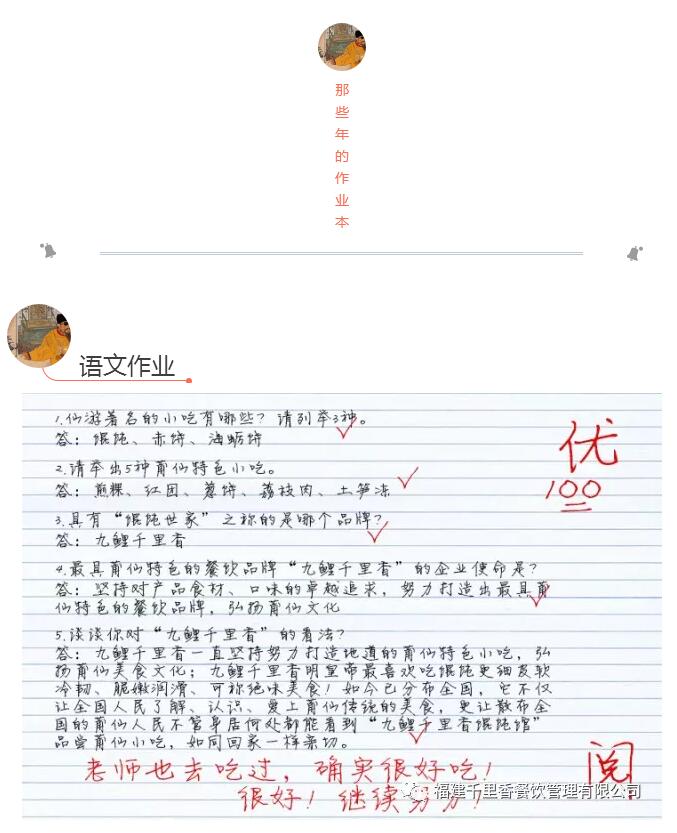 那些年的作业本
语文作业
1.仙游著名的小吃有哪些？请列举3种。
答：馄饨、赤饼、海蛎饼
2.请举出5种莆仙特色小吃。
答：煎粿、红团、薯饼、荔枝肉、土笋冻
3.具有“馄饨世家”之称的是哪个品牌？
答：九鲤千里香
4.最具莆仙特色的餐饮品牌“九鲤千里香”的企业使命是？
答：坚持对产品食材、口味的卓越追求，努力打造出最具莆
仙特色的餐饮品牌，弘扬莆仙文化
5.谈谈你对“九鲤千里香”的看法？
答：九鲤千里香一直坚持努力打造地道的莆仙特色小吃，弘
扬莆仙美食文化；九鲤千里香明皇帝最喜欢吃馄饨更细皮软
冷韧、脆嫩润滑、可称绝味美食！如今已分布全国，它不仅
让全国人民了解、认识、爱上莆仙传统的美食，更让散布全
国的莆仙人民不管身居何处都能看到“九鲤千里香馄饨馆”
品尝莆仙小吃，如同回家一样亲切。
优
100
老师也去吃过，确实很好吃！
很好！继续努力！
阅
福建千里香餐饮管理有限公司